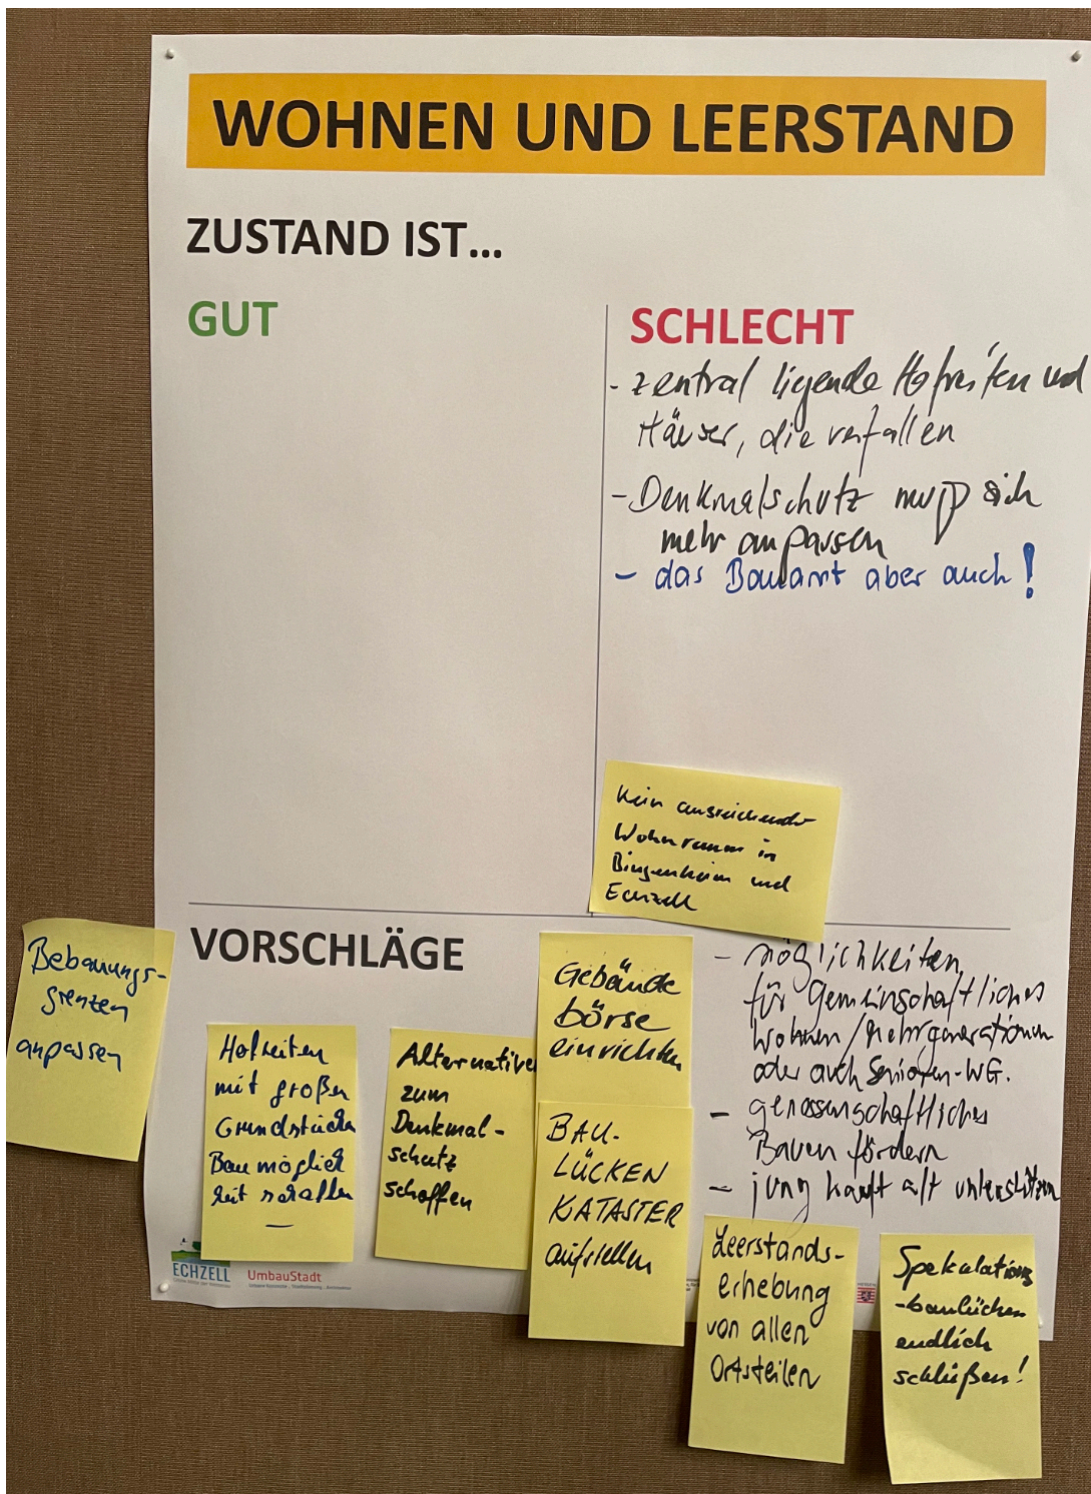 WOHNEN UND LEERSTAND
ZUSTAND IST...
GUT
SCHLECHT
- zentral ligende Hofreiten und
Häuser, die verfallen
- Denkmalschutz muß sich
mehr anpassen
- das Bauamt aber auch!
Kein ausreichender
Wohnraum in
Bingenheim und
Echzell
VORSCHLÄGE
Bebauungs-
grenzen
anpassen
Hofreiten
mit großen
Grundstücken
Baumöglich
keit schaffen
Alternative
zum
Denkmal-
schutz
schaffen
Gebäude
börse
einrichten
BAU-
LÜCKEN
KATASTER
aufstellen
- möglichkeiten
für gemeinschaftliches
Wohnen / Mehrgenerationen
oder auch Senioren-WG.
- genossenschaftliches
Bauen fördern
- jung kauft alt unterstützen
Leerstands-
erhebung
von allen
Ortsteilen
Spekulations
-baulücken
endlich
schließen!
ECHZELL
UmbauStadt